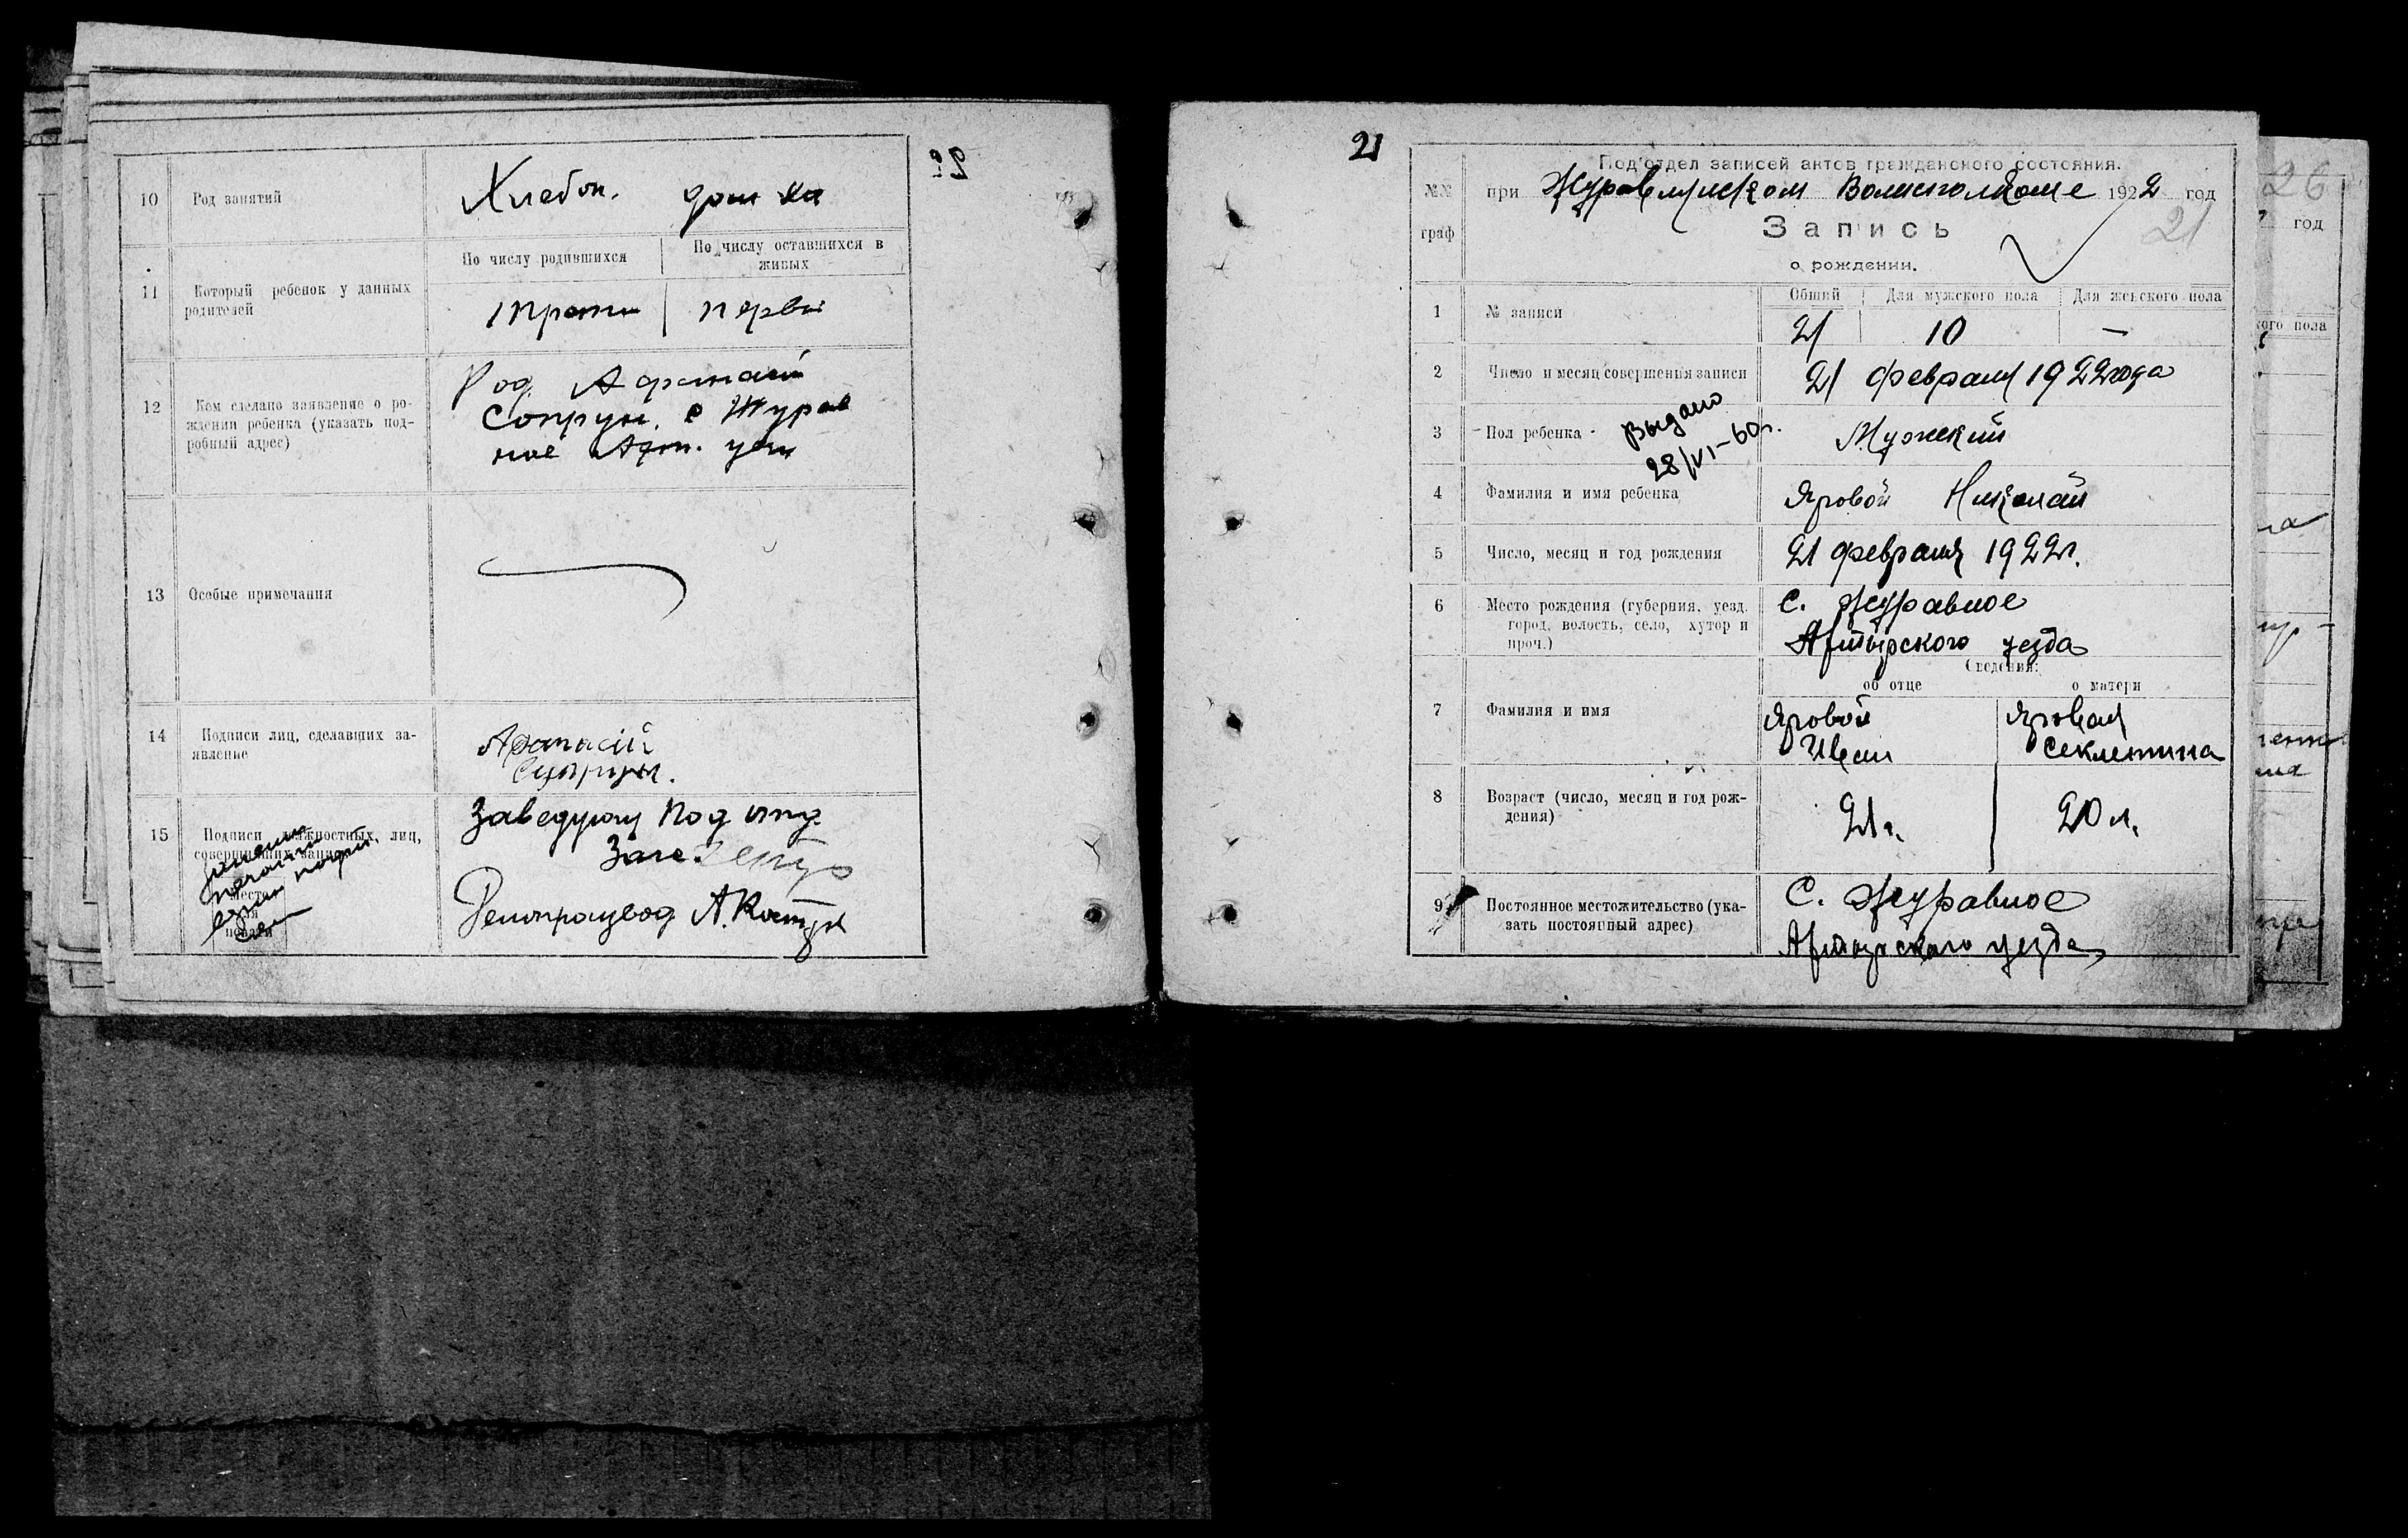 10 Род занятий Хлебоп. дом хоз
22
По числу родившихся По числу оставшихся в живых
11 Который ребенок у данных родителей
первы
12 Кем сделано заявление о ро-
ждении ребенка (указать под-
робный адрес)
Род. Афанасий
Сопрун. с Журав
ное Ахт. уез
13 Особые примечания
14 Подписи лиц, сделавших за-
явление
Афанасий
15 Подписи должностных лиц,
совершивших запись
Место
для
печати
Заведующ Подотд
Загс
Делопроизвод А. Костук
21
Под'отдел записей актов гражданского состояния.
№№ граф
при Журавлинском Волисполкоме 1922 год
Запись
21
о рождении.
Общий Для мужского пола Для женского пола
1 № записи 21 10 —
2 Число и месяц совершения записи 21 февраля 1922 года
Выдано
28/VI-60г.
3 Пол ребенка Мужский
4 Фамилия и имя ребенка Яровой Николай
5 Число, месяц и год рождения 21 февраля 1922г.
6 Место рождения (губерния, уезд,
город, волость, село, хутор и
проч.)
С. Журавное
Ахтырского уезда
Сведения:
об отце о матери
7 Фамилия и имя
Яровой Яровая
Иван Секлетина
8 Возраст (число, месяц и год рож-
дения)
21 г. 20 л.
9 Постоянное местожительство (ука-
зать постоянный адрес)
С. Журавное
Ахтырского уезда
26
год
кого пола